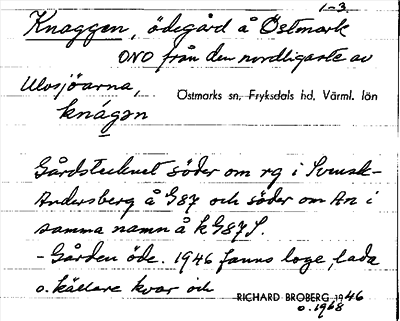 1-3.
Knaggen, ödegård å Östmark
ONO från den nordligaste av
Ulvsjöarna,
Östmarks sn, Fryksdals hd, Värml. län
knágən
Gårdstecknet söder om rg i Svensk-
Andersberg å G87 och söder om An i
samma namn å kG87S.
- Gården öde. 1946 fanns loge, lada
o. källare kvar och
RICHARD BROBERG 1946
o. 1968